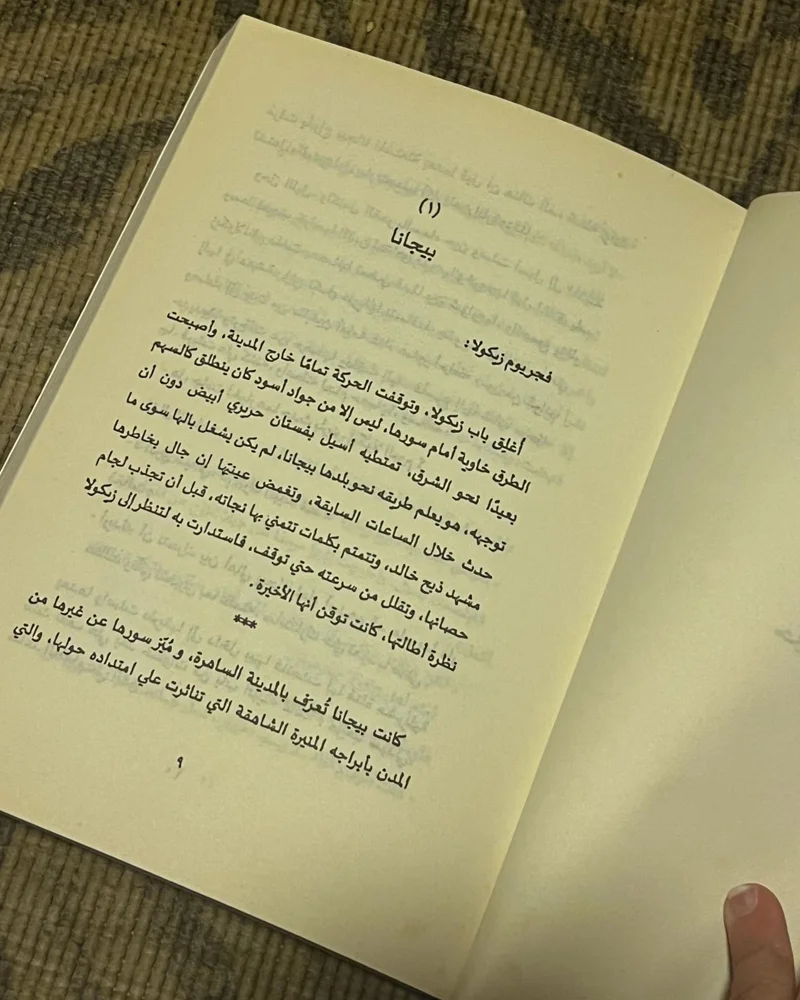 (١)
بيجانا
فجر يوم زيكولا:
أُغلِق باب زيكولا، وتوقفت الحركة تمامًا خارج المدينة، وأصبحت
الطرق خاوية أمام سورها، ليس إلا من جواد أسود كان ينطلق كالسهم
بعيدًا نحو الشرق، تمتطيه أسيل بفستان حريري أبيض دون أن
توجهه، هو يعلم طريقه نحو بلدها بيجانا، لم يكن يشغل بالها سوى ما
حدث خلال الساعات السابقة، وتغمض عينيها إن جال بخاطرها
مشهد ذبح خالد، وتتمتم بكلمات تتمنى بها نجاته، قبل أن تجذب لجام
حصانها، وتقلل من سرعته حتي توقف، فاستدارت به لتنظر إلى زيكولا
نظرة أطالتها، كانت توقن أنها الأخيرة.
***
كانت بيجانا تُعرَف بالمدينة الساهرة، و مُيّز سورها عن غيرها من
المدن بأبراجه المنيرة الشاهقة التي تناثرت علي امتداده حولها، والتي
٩